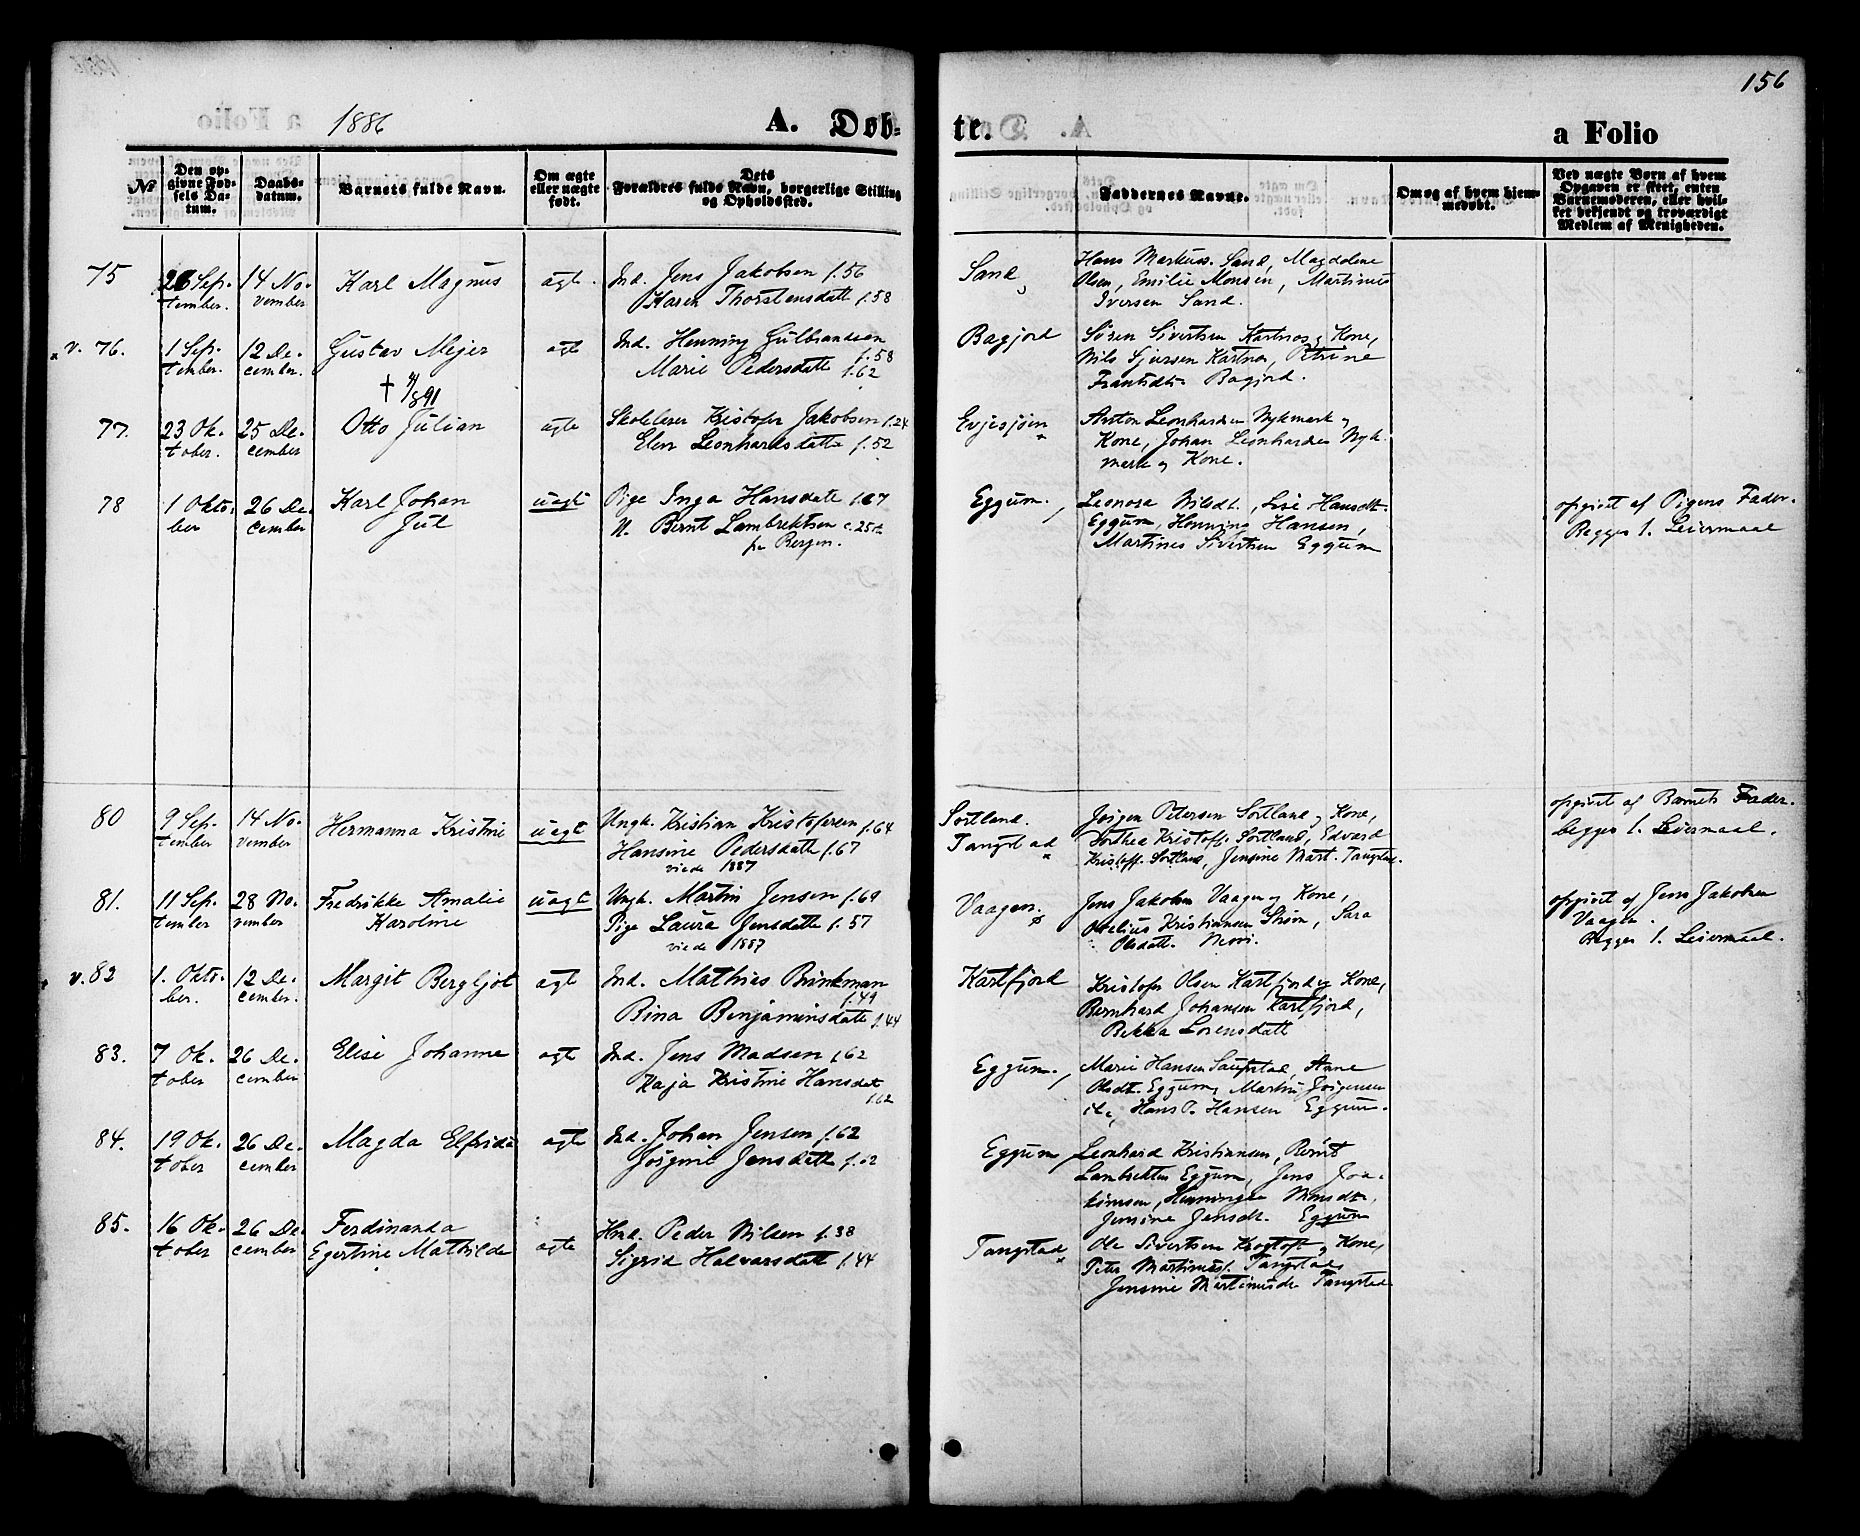 156
1886
A. Døb-
te.
a Folio
№
Den op-
givne Fød-
sels Da-
tum.
Daabs-
datum.
Barnets fulde Navn.
Om ægte
eller uægte
født.
Dets
Forældres fulde Navn, borgerlige Stilling
og Opholdssted.
Faddernes Navne.
Om og af hvem hjem-
medøbt.
Ved uægte Børn af hvem
Opgaven er sket, enten
Barnemoderen, eller hvil-
ket bekjendt og troværdigt
Medlem af Menigheden.
75
26 Sep-
tember.
14 No-
vember
Karl Magnus
ægte.
Ind. Jens Jakobsen f. 56
Karen Thorstensdatt f. 58
Sand
Hans Markuss. Sand, Magdalene
Olsen, Emilie Monsen, Martinus
Iversen Sand.
v. 76.
1 Sep-
tember
12 De-
cember.
Gustav Mejer
ægte
Ind. Henning Gulbrandsen
f. 58
Marie Pedersdatt f. 62
Bagjord
Sören Sivertsen Kartnes og Kone,
Nils Sjursen Kartnes, Petrine
Frantsdtr Bagjord.
† 4/8 91
77.
23 Ok-
tober.
25 De-
cember
Otto Julian
ægte
Skolelærer Kristofer Jakobsen f. 24
Elen Leonhardsdatte f. 52
Evjesjöen
Anton Leonhardsen Nykmark og
Kone, Johan Leonhardsen Nyk-
mark og Kone.
78
1 Okto-
ber
26 De-
cember
Karl Johan
Jul
uægte
Pige Inga Hansdatte f. 67
N. Bernt Lambrektsen c. 25 å
fra Bergen.
Eggum.
Leonora Nilsdt., Lise Hansdt.
Eggum, Henning Hansen,
Martines Sivertsen Eggum
opgivet af Pigens Fader.
Begges 1. Leiermaal
80
9 Sep-
tember
14 No-
vember
Hermanna Kristine
uægt
Ungk. Kristian Kristofersen f. 64
Hansine Pedersdatte f. 67
viede 1887
Sortland.
Tangstad
Jörgen Petersen Sortland og Kone,
Dorthea Kristoff. Sortland, Edvard
Kristoff. Sortland, Jensine Mart. Tangstad.
opgivet af Barnets Fader.
begges 1. Leiermaal.
81.
11 Sep-
tember
28 No-
vember
Fredrikke Amalie
Karoline
uægt
Ungk. Martin Jensen f. 69
Pige Laura Jensdatte f. 57
viede 1887
Vaagen.
Jens Jakobsen Vaagen og Kone,
Kristiansen Ström, Sara
Olsdatt.
opgivet af Jens Jakobsen
Vaagen.
Begges 1. Leiermaal.
v. 82
1. Okto-
ber.
12 De-
cember.
Margit Bergljot
ægte
Ind. Mathias Brinkman
f. 49
Bina Benjaminsdatte f. 44
Kartfjord
Kristofer Olsen Kartfjord og Kone,
Bernhard Johansen Kartfjord,
Bekka Lorensdatt
83.
7 Ok-
tober
26 De-
cember
Elise Johanne
ægte
Ind. Jens Madsen f. 62
Kaja Kristine Hansdat
f. 62
Eggum.
Marie Hansen Saupstad, Anne
Olsdt. Eggum, Martin Jörgensen
Hans O. Hansen Eggum.
84.
19 Ok-
tober
26 De-
cember
Magda Elfrida
ægte
Ind. Johan Jensen f. 62
Jörgine Jensdatte f. 62
Eggum
Leonhard Kristiansen, Bernt
Lambrektsen Eggum, Jens Joa-
kimsen, Henningine Monsdtr.
Jensine Jensdt. Eggum
85.
16 Ok-
tober
26 De-
cember
Ferdinanda
Egertine Mathilde
ægte
Hmd. Peder Nilsen f. 38
Sigrid Halvarsdatt f. 44
Tangstad
Ole Sivertsen Krogtoft og Kone,
Peter Martinuss. Tangstad
Jensine Martinusdtr Tangstad